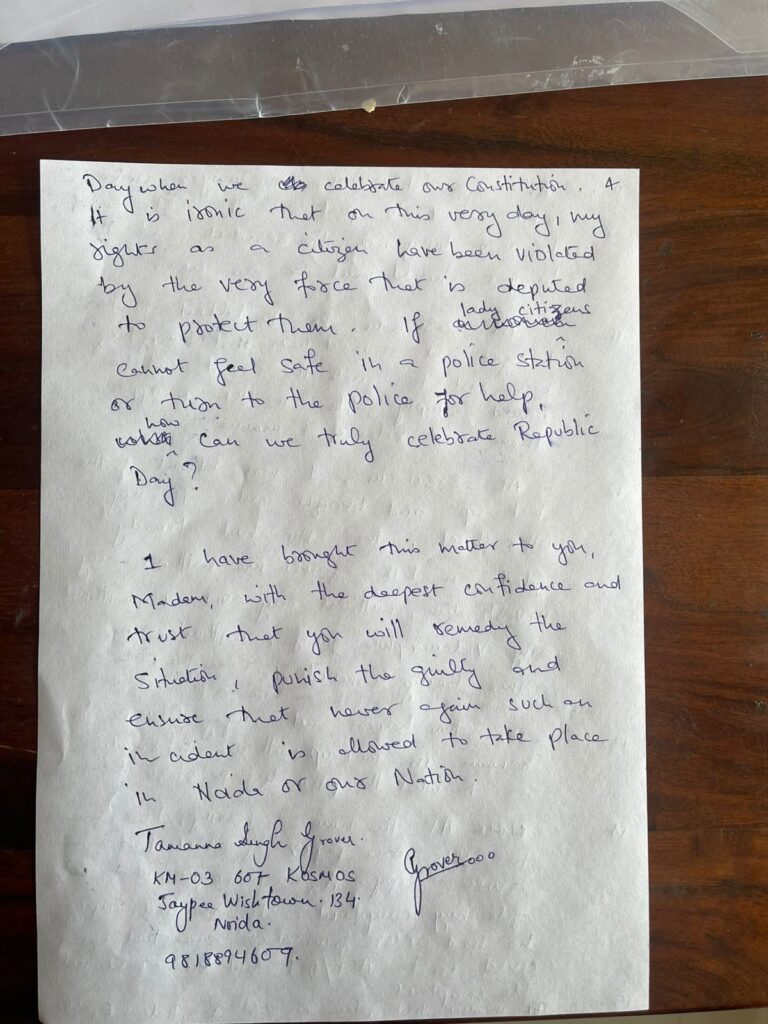 Day when we celebrate our Constitution. 4
It is ironic that on this very day, my
rights as a citizen have been violated
by the very force that is deputed
lady citizens
to protect them. If
cannot feel safe in a police station
or turn to the police for help,
how
can we truly celebrate Republic
Day?
I have brought this matter to you,
Madam, with the deepest confidence and
trust that you will remedy the
situation, punish the guilty and
ensure that never again such an
incident is allowed to take place
in Noida or our Nation.
Tamanna Singh Grover.
KM-03 607 KOSMOS
Grover
Jaypee Wishtown. 134.
Noida.
9818894609.